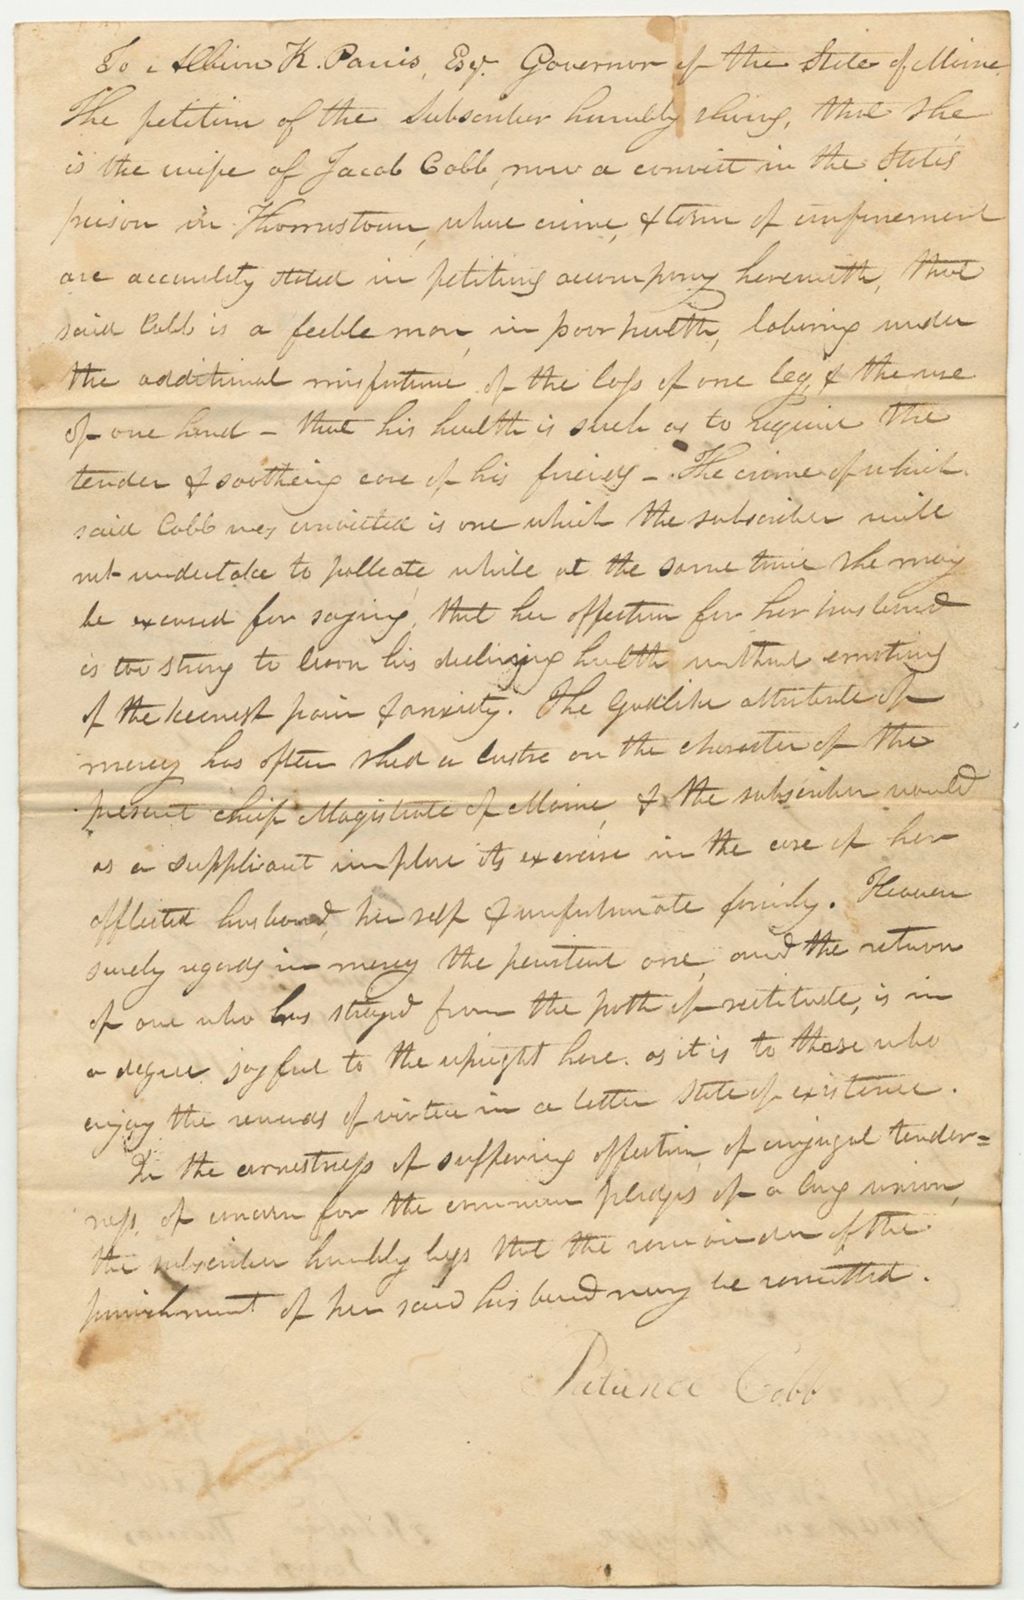 To Albion K. Parris, Esq. Governor of the State of Maine.
The petition of the Subscriber humbly shews, that she
is the wife of Jacob Cobb, now a convict in the State's
prison in Thomastown, whose crime, & term of confinement
are accurately stated in petitions accompany herewith, that
said Cobb is a feeble man, in poor health, laboring under
the additional misfortune of the loss of one leg, & the use
of one hand – that his health is such as to require the
tender & soothing care of his friends – The crime of which
said Cobb was convicted is one which the subscriber will
not undertake to palleate while at the same time she may
be excused for saying, that her affection for her husband
is too strong to learn his declining health without emotions
of the keenest pain & anxiety. The Godlike attribute of
mercy has often shed a lustre on the character of the
present chief Magistrate of Maine, & the subscriber would
as a supplicant implore its exercise in the case of her
afflicted husband, her self & unfortunate family. Heaven
surely regards in mercy the penitent one, and the return
of one who has strayd from the path of rectitude, is in
a degree joyful to the upright here. as it is to those who
enjoy the rewards of virtue in a better state of existence.
In the earnestness of suffering affection, of conjugal tender=
ness, of concern for the common pledges of a long union,
the subscriber humbly begs that the remainder of the
punishment of her said husband may be remitted.
Patience Cobb